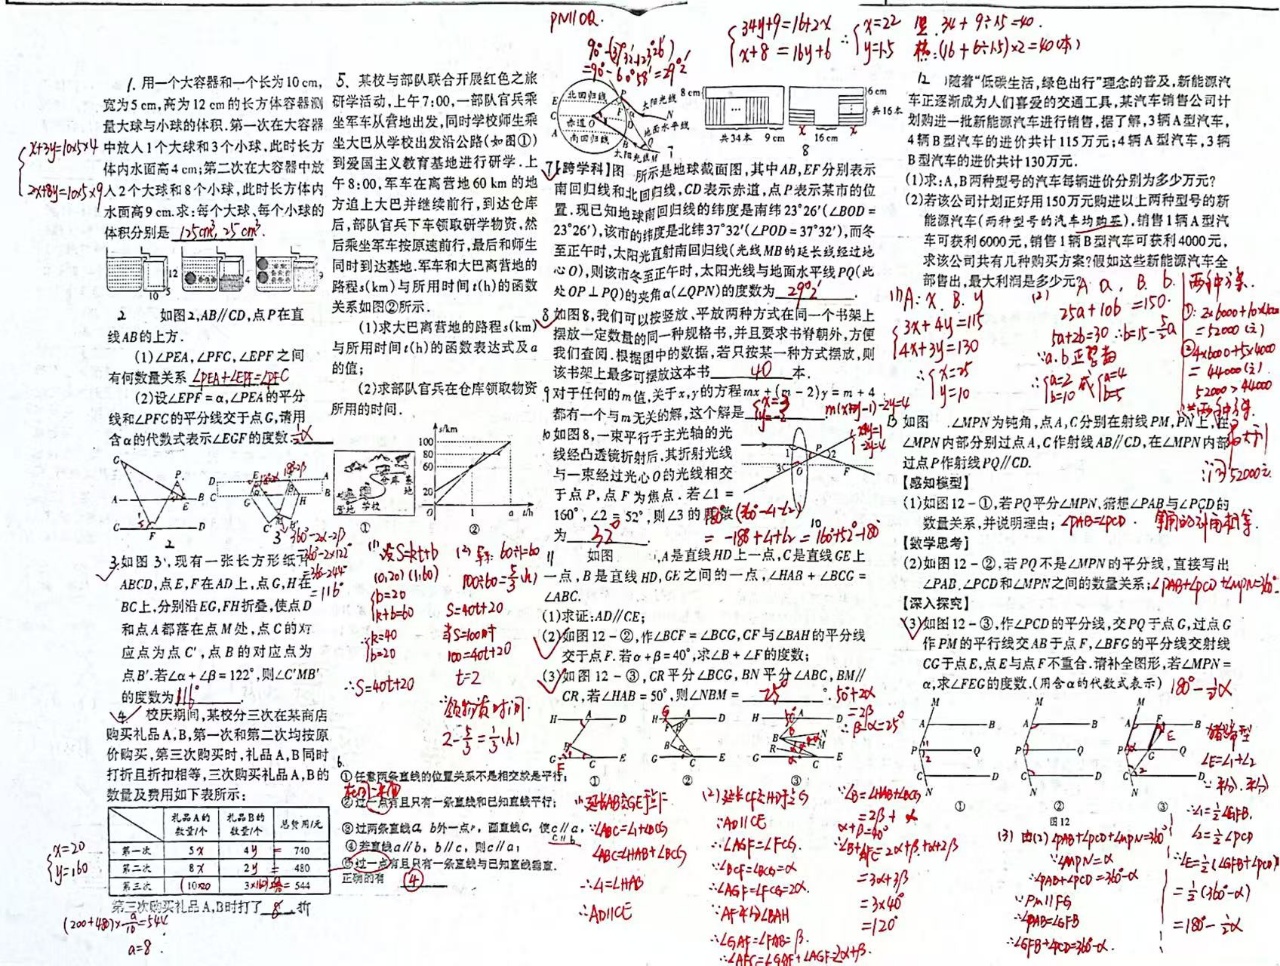 1. 用一个大容器和一个长为10 cm,
宽为5 cm,高为12 cm的长方体容器测
量大球与小球的体积.第一次在大容器
中放入1个大球和3个小球,此时长方
体内水面高4 cm;第二次在大容器中放
入2个大球和8个小球,此时长方体内
水面高9 cm.求:每个大球、每个小球的
体积分别是 125cm³, 25cm³.
x+3y=10×5×4
2x+8y=10×5×9
2 如图2,AB//CD,点P在直
线AB的上方.
(1)∠PEA,∠PFC,∠EPF之间
有何数量关系 ∠PEA+∠EPF=∠PFC
(2)设∠EPF=α,∠PEA的平分
线和∠PFC的平分线交于点G,请用
含α的代数式表示∠EGF的度数:
3.如图3,现有一张长方形纸片
ABCD,点E,F在AD上,点G,H在
BC上,分别沿EG,FH折叠,使点D
和点A都落在点M处,点C的对
应点为点C',点B的对应点为
点B'.若∠α+∠β=122°,则∠C'MB'
的度数为 116°
4. 校庆期间,某校分三次在某商店
购买礼品A,B,第一次和第二次均按原
价购买,第三次购买时,礼品A,B同时
打折且折扣相等,三次购买礼品A,B的
数量及费用如下表所示:
礼品A的数量/个 礼品B的数量/个 总费用/元
第一次 5x 4y = 740
第二次 8x 2y = 480
第三次 10 3 = 544
x=20
y=160
第三次购买礼品A,B时打了 8 折
(200+480)×a/10=544
a=8
5. 某校与部队联合开展红色之旅
研学活动,上午7:00,一部队官兵乘
坐军车从营地出发,同时学校师生乘
坐大巴从学校出发沿公路(如图①)
到爱国主义教育基地进行研学.上
午8:00,军车在离营地60 km的地
方追上大巴并继续前行,到达仓库
后,部队官兵下车领取研学物资,然
后乘坐军车按原速前行,最后和师生
同时到达基地.军车和大巴离营地的
路程s(km)与所用时间t(h)的函数
关系如图②所示.
(1)求大巴离营地的路程s(km)
与所用时间t(h)的函数表达式及a
的值;
(2)求部队官兵在仓库领取物资
所用的时间.
s/km
100
80
60
20
0 1 a t/h
① ②
(1) 设S=kt+b
(0,20) (1,60)
b=20
k+b=60
∴k=40
b=20
∴S=40t+20
(2) 60÷1=60
100÷60=5/3(h)
S=40t+20
当S=100时
100=40t+20
t=2
∴领物资时间
2-5/3=1/3(h)
6.
①任意两条直线的位置关系不是相交就是平行;
②过一点有且只有一条直线和已知直线平行;
③过两条直线a, b外一点P,画直线c,使c//a,c//b
④若直线a//b, b//c,则c//a;
⑤过一点有且只有一条直线与已知直线垂直.
正确的有 ④
PN110Q.
90°-(37°32'+23°26')
=90°-60°58'=29°2'
北回归线
赤道
南回归线
太阳光线
地面水平线
太阳光线M
7
34y+9=16+2x
x+8=16y+6
∴ x=22
y=1.5
竖: 34+9÷1.5=40.
横:(16+6÷1.5)×2=40(本)
8 cm
6 cm
共16本
共34本 9 cm
16 cm
8
7.【跨学科】图 所示是地球截面图,其中AB,EF分别表示
南回归线和北回归线,CD表示赤道,点P表示某市的位
置.现已知地球南回归线的纬度是南纬23°26'(∠BOD=
23°26'),该市的纬度是北纬37°32'(∠POD=37°32'),而冬
至正午时,太阳光直射南回归线(光线MB的延长线经过地
心O),则该市冬至正午时,太阳光线与地面水平线PQ(此
处OP⊥PQ)的夹角α(∠QPN)的度数为 29°2'.
8 如图8,我们可以按竖放、平放两种方式在同一个书架上
摆放一定数量的同一种规格书,并且要求书脊朝外,方便
我们查阅.根据图中的数据,若只按某一种方式摆放,则
该书架上最多可摆放这本书 40 本.
9 对于任何的m值,关于x,y的方程mx+(m-2)y=m+4
都有一个与m无关的解,这个解是 x=3 y=-2
m(x+y-1)-2y=4
x+y=1
-2y=4
10 如图8,一束平行于主光轴的光
线经凸透镜折射后,其折射光线
与一束经过光心O的光线相交
于点P,点F为焦点.若∠1=
160°,∠2=52°,则∠3的度数
为 32°
=-180+∠1+∠2=160+52-180
10
11 如图 ,A是直线HD上一点,C是直线GE上
一点,B是直线HD,GE之间的一点,∠HAB+∠BCG=
∠ABC.
(1)求证:AD//CE;
(2)如图12-②,作∠BCF=∠BCG,CF与∠BAH的平分线
交于点F.若α+β=40°,求∠B+∠F的度数;
(3)如图12-③,CR平分∠BCG,BN平分∠ABC,BM//
CR,若∠HAB=50°,则∠NBM= 25°.
50°+2α
=2β
β-α=25°
① ② ③
(1)延长AB交GE于F
∴∠ABC=∠1+∠BCG
∠ABC=∠HAB+∠BCG
∴∠1=∠HAB
∴AD//CE
(2)延长CF交HD于G
∵AD//CE
∴∠AGF=∠FCG
∵∠BCF=∠BCG=α
∴∠AGF=∠FCG=2α
∵AF平分∠BAH
∴∠GAF=∠FAB=β.
∴∠AFC=∠GAF+∠AGF=2α+β.
∵∠B=∠HAB+∠BCG
=2β+α
α+β=40°
∴∠B+∠AFC=2α+β+α+2β
=3α+3β
=3×40°
=120°
12 )随着“低碳生活,绿色出行”理念的普及,新能源汽
车正逐渐成为人们喜爱的交通工具,某汽车销售公司计
划购进一批新能源汽车进行销售,据了解,3辆A型汽车,
4辆B型汽车的进价共计115万元;4辆A型汽车,3辆
B型汽车的进价共计130万元.
(1)求:A,B两种型号的汽车每辆进价分别为多少万元?
(2)若该公司计划正好用150万元购进以上两种型号的新
能源汽车(两种型号的汽车均购买),销售1辆A型汽
车可获利6000元,销售1辆B型汽车可获利4000元,
求该公司共有几种购买方案?假如这些新能源汽车全
部售出,最大利润是多少元?
(1) A: x, B. y
3x+4y=115
4x+3y=130
∴ x=25
y=10
(2) A a, B. b
25a+10b=150
5a+2b=30 ∴b=15-5/2a
∵a.b正整数
∴ a=2 b=10 或 a=4 b=5
∴两种方案.
①: 2×6000+10×4000
=52000(元)
②4×6000+5×4000
=44000(元)
52000>44000
13 如图 .∠MPN为钝角,点A,C分别在射线PM,PN上,在
∠MPN内部分别过点A,C作射线AB//CD,在∠MPN内部
过点P作射线PQ//CD.
【感知模型】
(1)如图12-①,若PQ平分∠MPN,猜想∠PAB与∠PCD的
数量关系,并说明理由; ∠PAB=∠PCD
【数学思考】
(2)如图12-②,若PQ不是∠MPN的平分线,直接写出
∠PAB,∠PCD和∠MPN之间的数量关系; ∠PAB+∠PCD+∠MPN=360°
【深入探究】
(3)如图12-③,作∠PCD的平分线,交PQ于点G,过点G
作PM的平行线交AB于点F,∠BFG的平分线交射线
CG于点E,点E与点F不重合.请补全图形,若∠MPN=
α,求∠FEG的度数.(用含α的代数式表示) 180°-½α
① ② ③
图12
∠E=∠1+∠2
∴∠1=½∠GFB
∠2=½∠PCD
∴∠E=½(∠GFB+∠PCD)
=½(360°-α)
=180°-½α
(3) 由(2)∠PAB+∠PCD+∠MPN=360°
∵∠MPN=α
∴∠PAB+∠PCD=360°-α
∵PM//FG
∴∠PAB=∠GFB
∴∠GFB+∠PCD=360°-α.